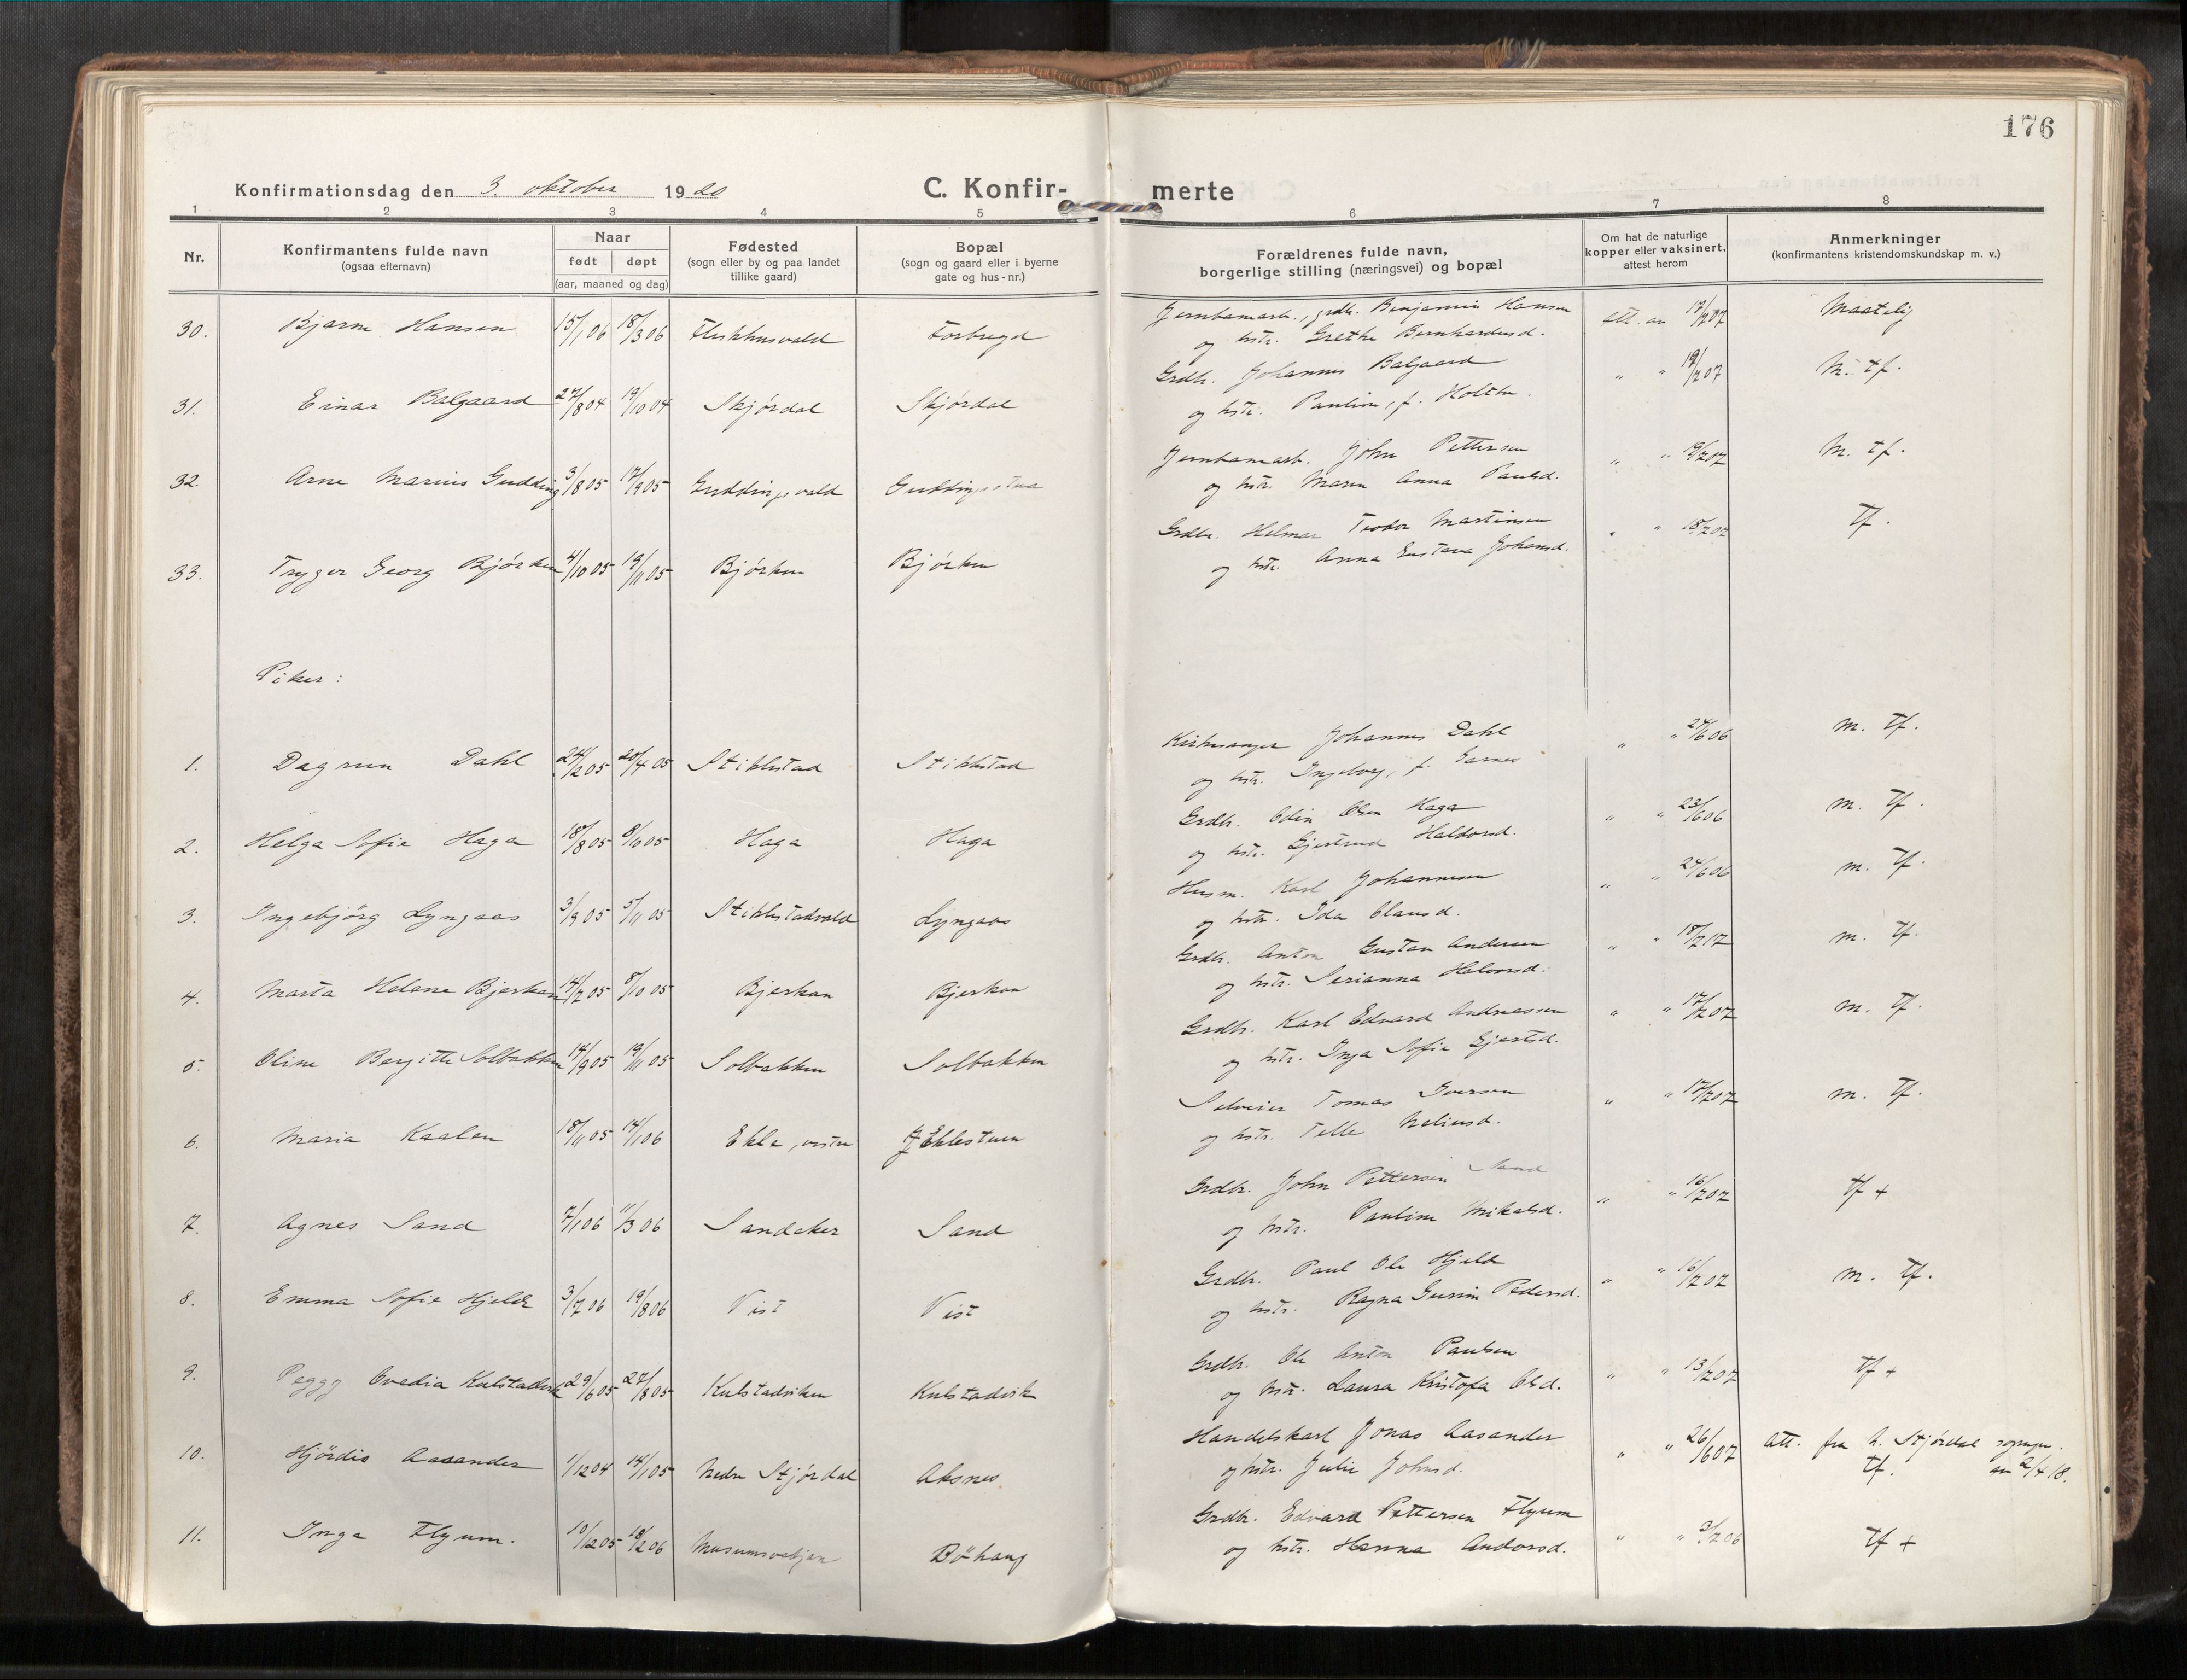 176
Konfirmationsdag den 3. oktober 1920
C. Konfir-
merte
1 2 3 4 5 6 7 8
Nr.
Konfirmantens fulde navn
(ogsaa efternavn)
Naar
født døpt
(aar, maaned og dag)
Fødested
(sogn eller by og paa landet
tillike gaard)
Bopæl
(sogn og gaard eller i byerne
gate og hus-nr.)
Forældrenes fulde navn,
borgerlige stilling (næringsvei) og bopæl
Om hat de naturlige
kopper eller vaksinert,
attest herom
Anmerkninger
(konfirmantens kristendomskundskap m. v.)
30. Bjarne Hansen 15/1 06 18/3 06 Forbregd
Jernbanearb., grdbr. Benjamin Hansen
og hstr. Grethe Bernhardusd.
att. av 17/7 07 Maatelig
31. Einar Balgaard 27/8 04 19/10 04 Skjørdal Skjørdal
Grdbr. Johannes Balgaard
og hstr. Pauline, f. Holthe.
" " 19/7 07 M. tf.
32. Arne Marius Gudding 3/8 05 17/9 05 Guddingsvald Guddingsstua
Jernbanearb. John Pettersen
og hstr. Maren Anna Paulsd.
" " M. tf.
33. Trygve Georg Bjørken 4/10 05 19/11 05 Bjørken Bjørken
Grdbr. Helmer Teodor Martinsen
og hstr. Anna Gustava Johansd.
" " 18/7 07 Tf.
Piker:
1. Dagrun Dahl 24/2 05 20/4 05 Stiklestad Stiklestad
Kirkesanger Johannes Dahl
og hstr. Ingeborg, f. Garnes
" " 27/6 06 m. Tf.
2. Helga Sofie Haga 18/8 05 8/10 05 Haga Haga
Grdbr. Odin Olsen Haga
og hstr. Gjertrud Haldorsd.
" " 23/6 06 m. Tf.
3. Ingebjørg Lyngaas 3/9 05 5/11 05 Stiklestadvald Lyngaas
Husm. Karl Johannesen
og hstr. Ida Olausd.
" " 24/6 06 m. Tf.
4. Marta Helene Bjerkan 14/7 05 8/10 05 Bjerkan Bjerkan
Grdbr. Anton Gustav Andersen
og hstr. Serianna Halvorsd.
" " 18/7 17 m. Tf.
5. Oline Bergitte Solbakken 14/9 05 19/11 05 Solbakken Solbakken
Grdbr. Karl Edvard Andreassen
og hstr. Inga Sofie Gjertsd.
" " 17/7 07 m. Tf.
6. Maria Kaalen 18/11 05 14/1 06 Ekle, vestre Eklestuen
Selveier Tomas Iversen
og hstr. Telle Neliusd.
" " 17/7 07 m. Tf.
7. Agnes Sand 7/1 06 11/3 06 Sandaker Sand
Grdbr. John Pettersen Sand
og hstr. Pauline Mikalsd.
" " 16/7 07 Tf +
8. Emma Sofie Hjelde 3/7 06 19/8 06 Vist Vist
Grdbr. Paul Ole Hjelde
og hstr. Ragna Gurine Pedersd.
" " 16/7 07 m. Tf.
9. Peggy Ovedia Kulstadvik 29/6 05 27/8 05 Kulstadviken Kulstadvik
Grdbr. Ole Anton Paulsen
og hstr. Laura Kristofa Olsd.
" " 13/7 07 Tf +
10. Hjördis Aasander 1/12 04 14/1 05 Nedre Stjørdal Aksnes
Handelskarl Jonas Aasander
og hstr. Julie Johnsd.
" " 26/6 07 Att. fra N. Stjørdal sognepr.
Tf. av 2/4 18.
11. Inga Flyum. 10/12 05 18/2 06 Böhaug
Grdbr. Edvard Pettersen Flyum
og hstr. Hanna Andorsd.
" " Tf +